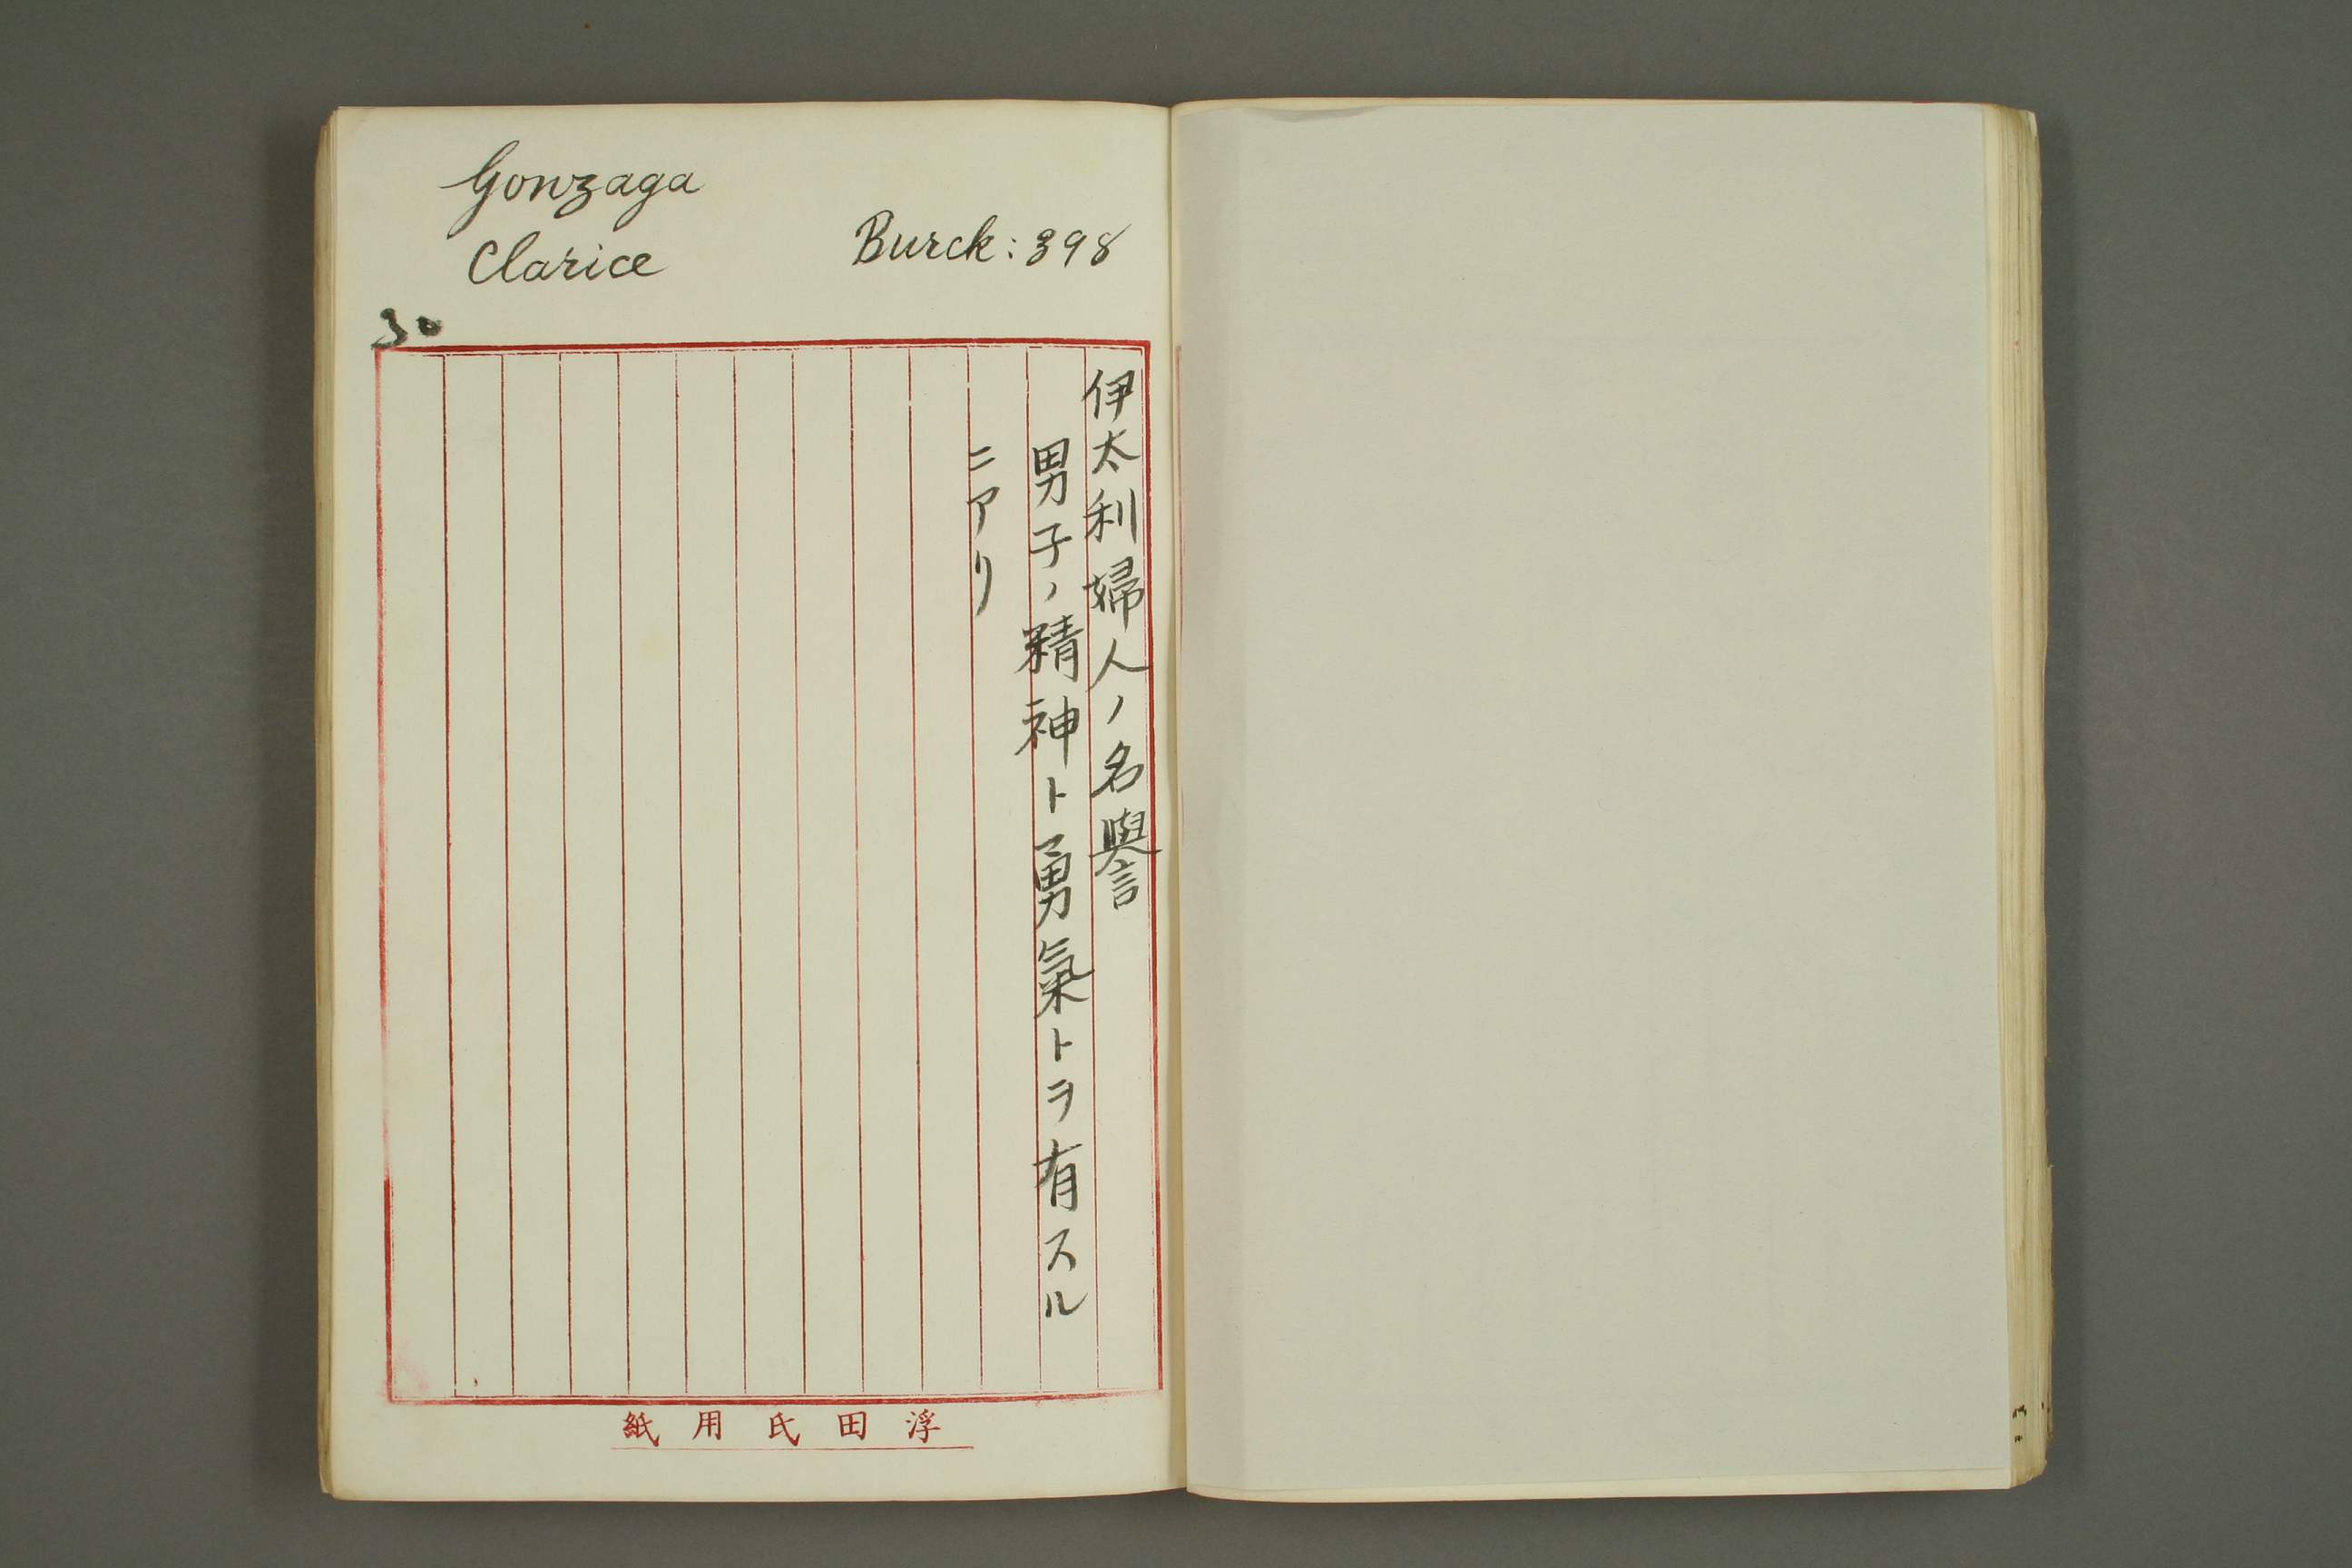 Gonzaga
Clarice
Burck: 398
30
伊太利婦人ノ名譽
男子ノ精神ト勇氣トヲ有スル
ニアリ
浮田氏用紙